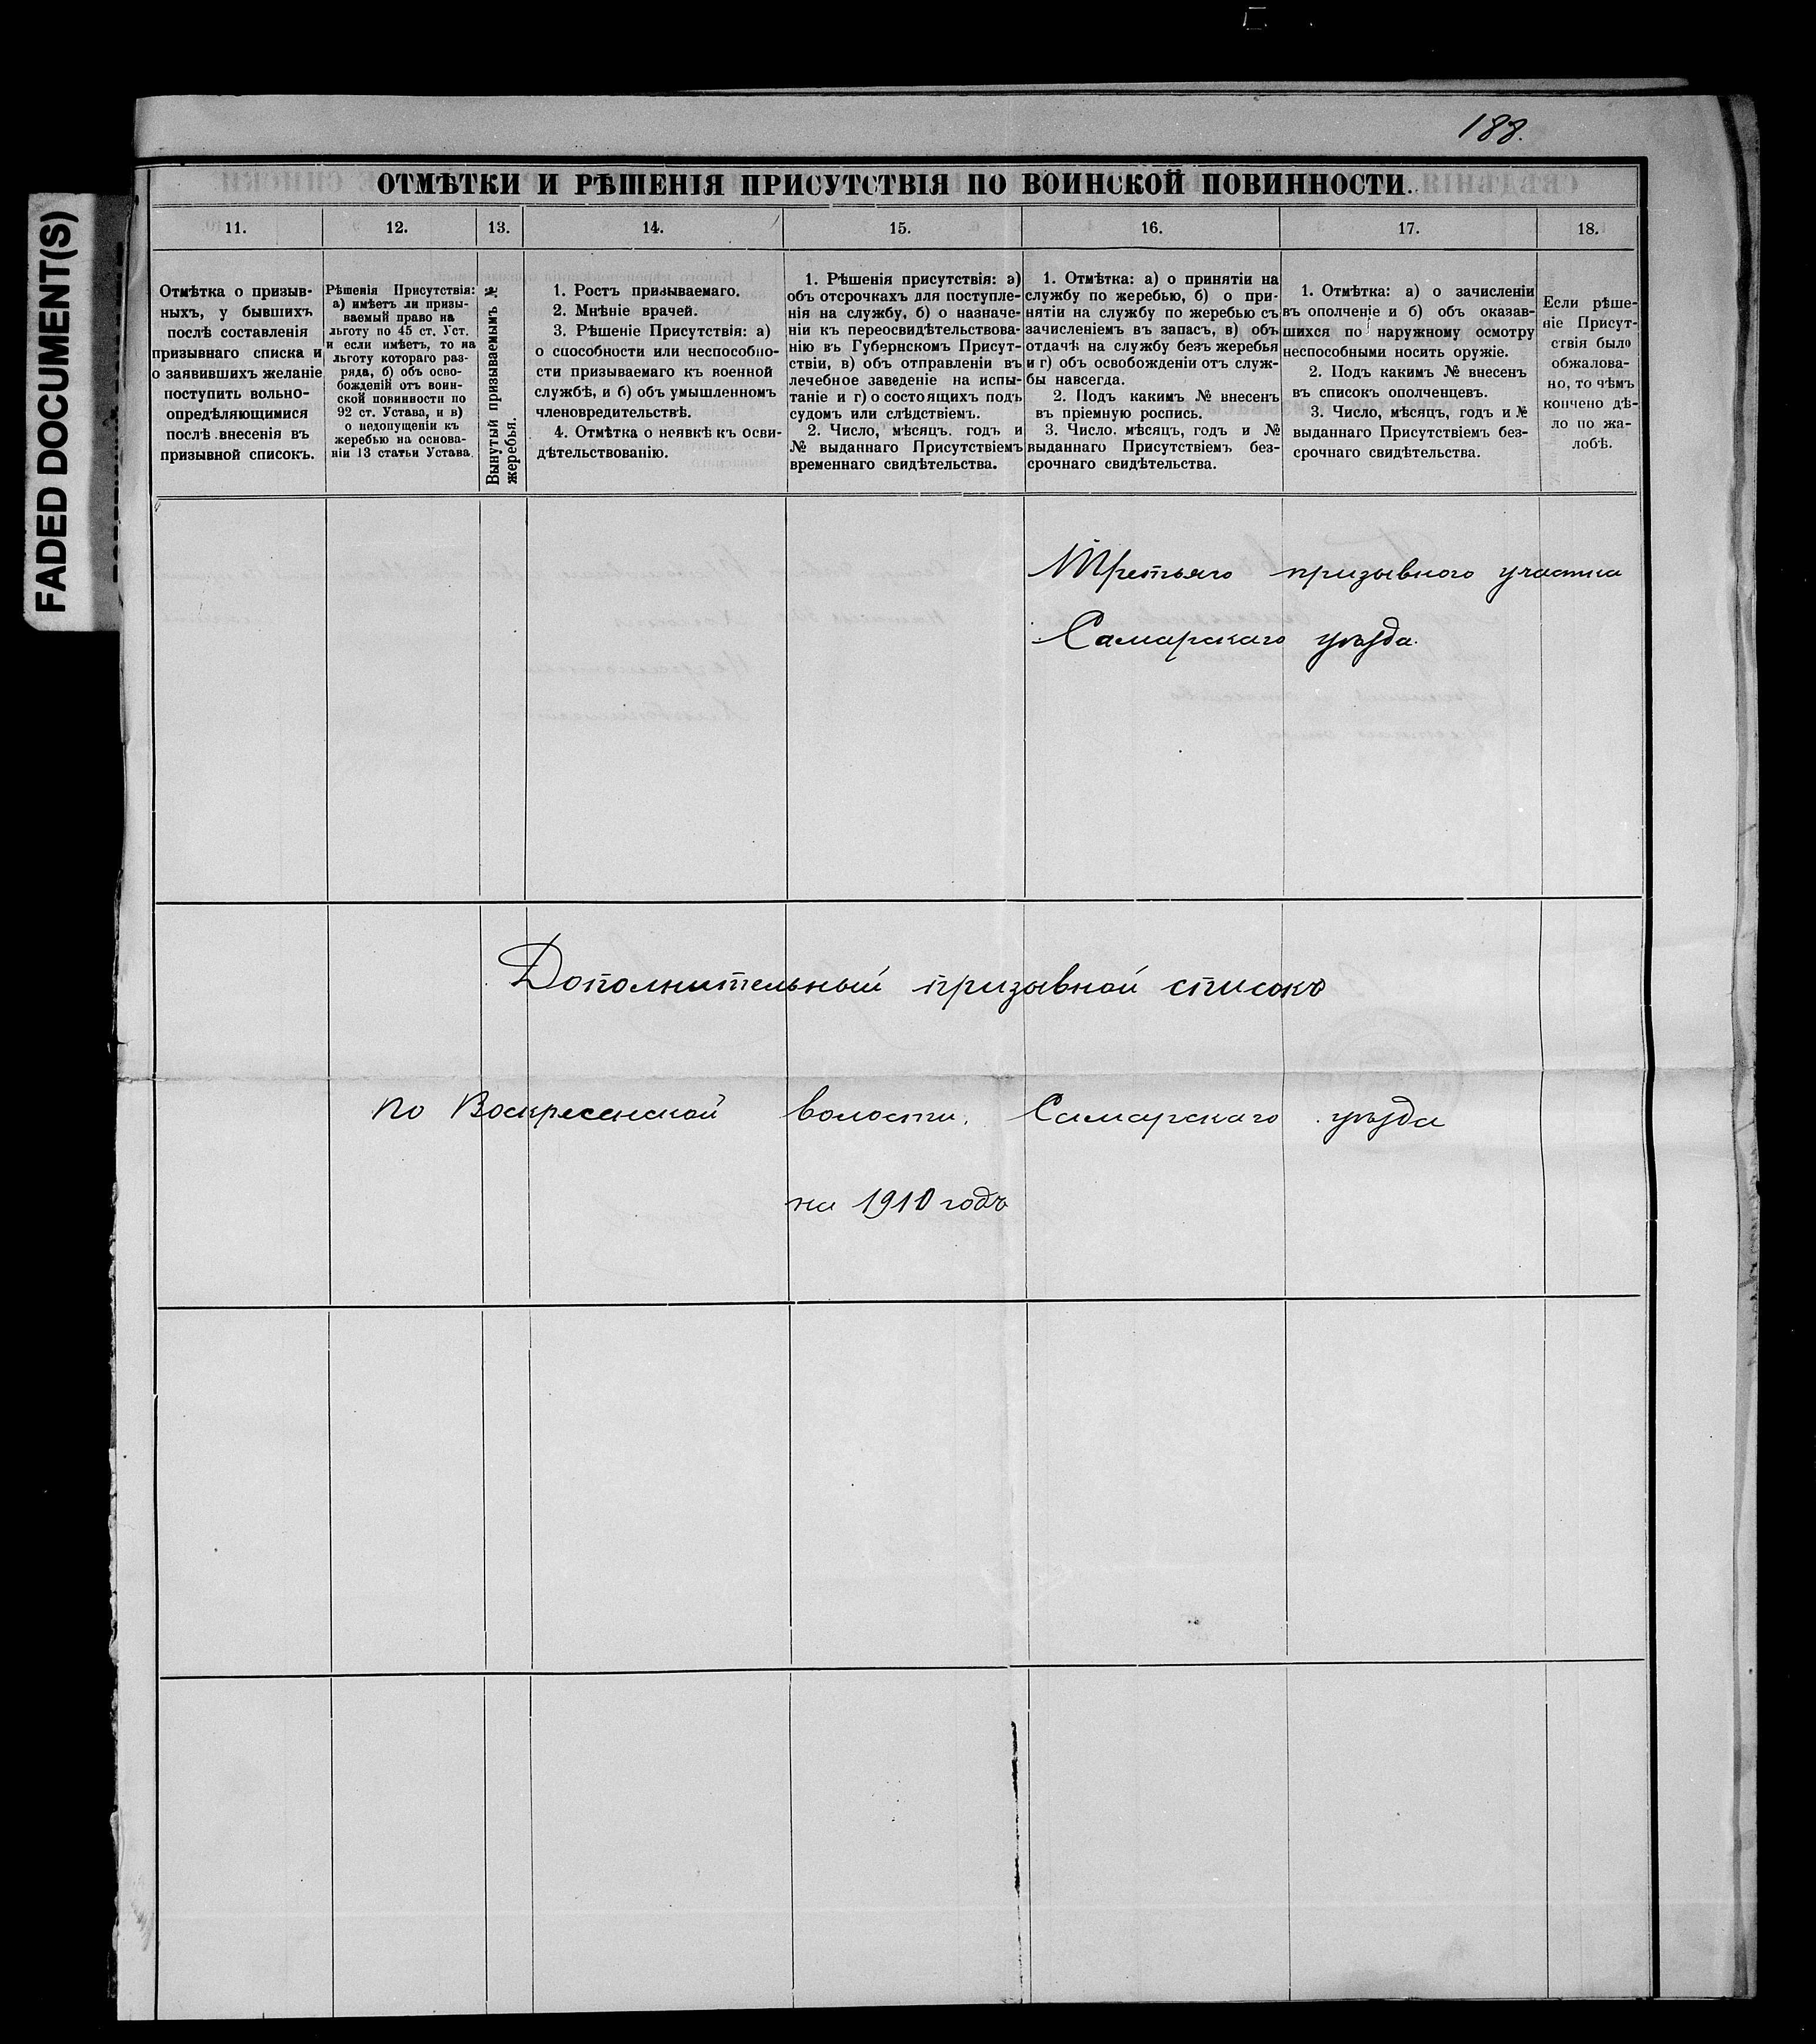 FADED DOCUMENT(S)
188.
ОТМѢТКИ И РѢШЕНІЯ ПРИСУТСТВІЯ ПО ВОИНСКОЙ ПОВИННОСТИ.
11. 12. 13. 14. 15. 16. 17. 18.
Отмѣтка о призыв-
ныхъ, у бывшихъ
послѣ составленія
призывнаго списка и
о заявившихъ желаніе
поступить вольно-
опредѣляющимися
послѣ внесенія въ
призывной списокъ.
Рѣшенія Присутствія:
а) имѣетъ ли призы-
ваемый право на
льготу по 45 ст. Уст.
и если имѣетъ, то на
льготу котораго раз-
ряда, б) объ осво-
божденій отъ воин-
ской повинности по
92 ст. Устава, и в)
о недопущеніи къ
жеребью на основа-
ніи 13 статьи Устава.
Вынутый призываемымъ №
жеребья.
1. Ростъ призываемаго.
2. Мнѣніе врачей.
3. Рѣшеніе Присутствія: а)
о способности или неспособно-
сти призываемаго къ военной
службѣ, и б) объ умышленномъ
членовредительствѣ.
4. Отмѣтка о неявкѣ къ осви-
дѣтельствованію.
1. Рѣшенія присутствія: а)
объ отсрочкахъ для поступле-
нія на службу, б) о назначе-
ніи къ переосвидѣтельствова-
нію въ Губернскомъ Присут-
ствіи, в) объ отправленіи въ
лечебное заведеніе на испы-
таніе и г) о состоящихъ подъ
судомъ или слѣдствіемъ.
2. Число, мѣсяцъ. годъ и
№ выданнаго Присутствіемъ
временнаго свидѣтельства.
1. Отмѣтка: а) о принятіи на
службу по жеребью, б) о при-
нятіи на службу по жеребью съ
зачисленіемъ въ запасъ, в) объ
отдачѣ на службу безъ жеребья
и г) объ освобожденіи отъ служ-
бы навсегда.
2. Подъ какимъ № внесенъ
въ пріемную роспись.
3. Число. мѣсяцъ, годъ и №
выданнаго Присутствіемъ без-
срочнаго свидѣтельства.
1. Отмѣтка: а) о зачисленіи
въ ополченіе и б) объ оказав-
шихся по наружному осмотру
неспособными носить оружіе.
2. Подъ какимъ № внесенъ
въ списокъ ополченцевъ.
3. Число, мѣсяцъ, годъ и №
выданнаго Присутствіемъ без-
срочнаго свидѣтельства.
Если рѣше-
ніе Присут-
ствія было
обжалова-
но, то чѣмъ
кончено дѣ-
ло по жа-
лобѣ.
Третьяго призывного участка
Самарскаго уѣзда.
Дополнительный призывной списокъ
по Воскресенской волости, Самарскаго уѣзда
на 1910 годъ